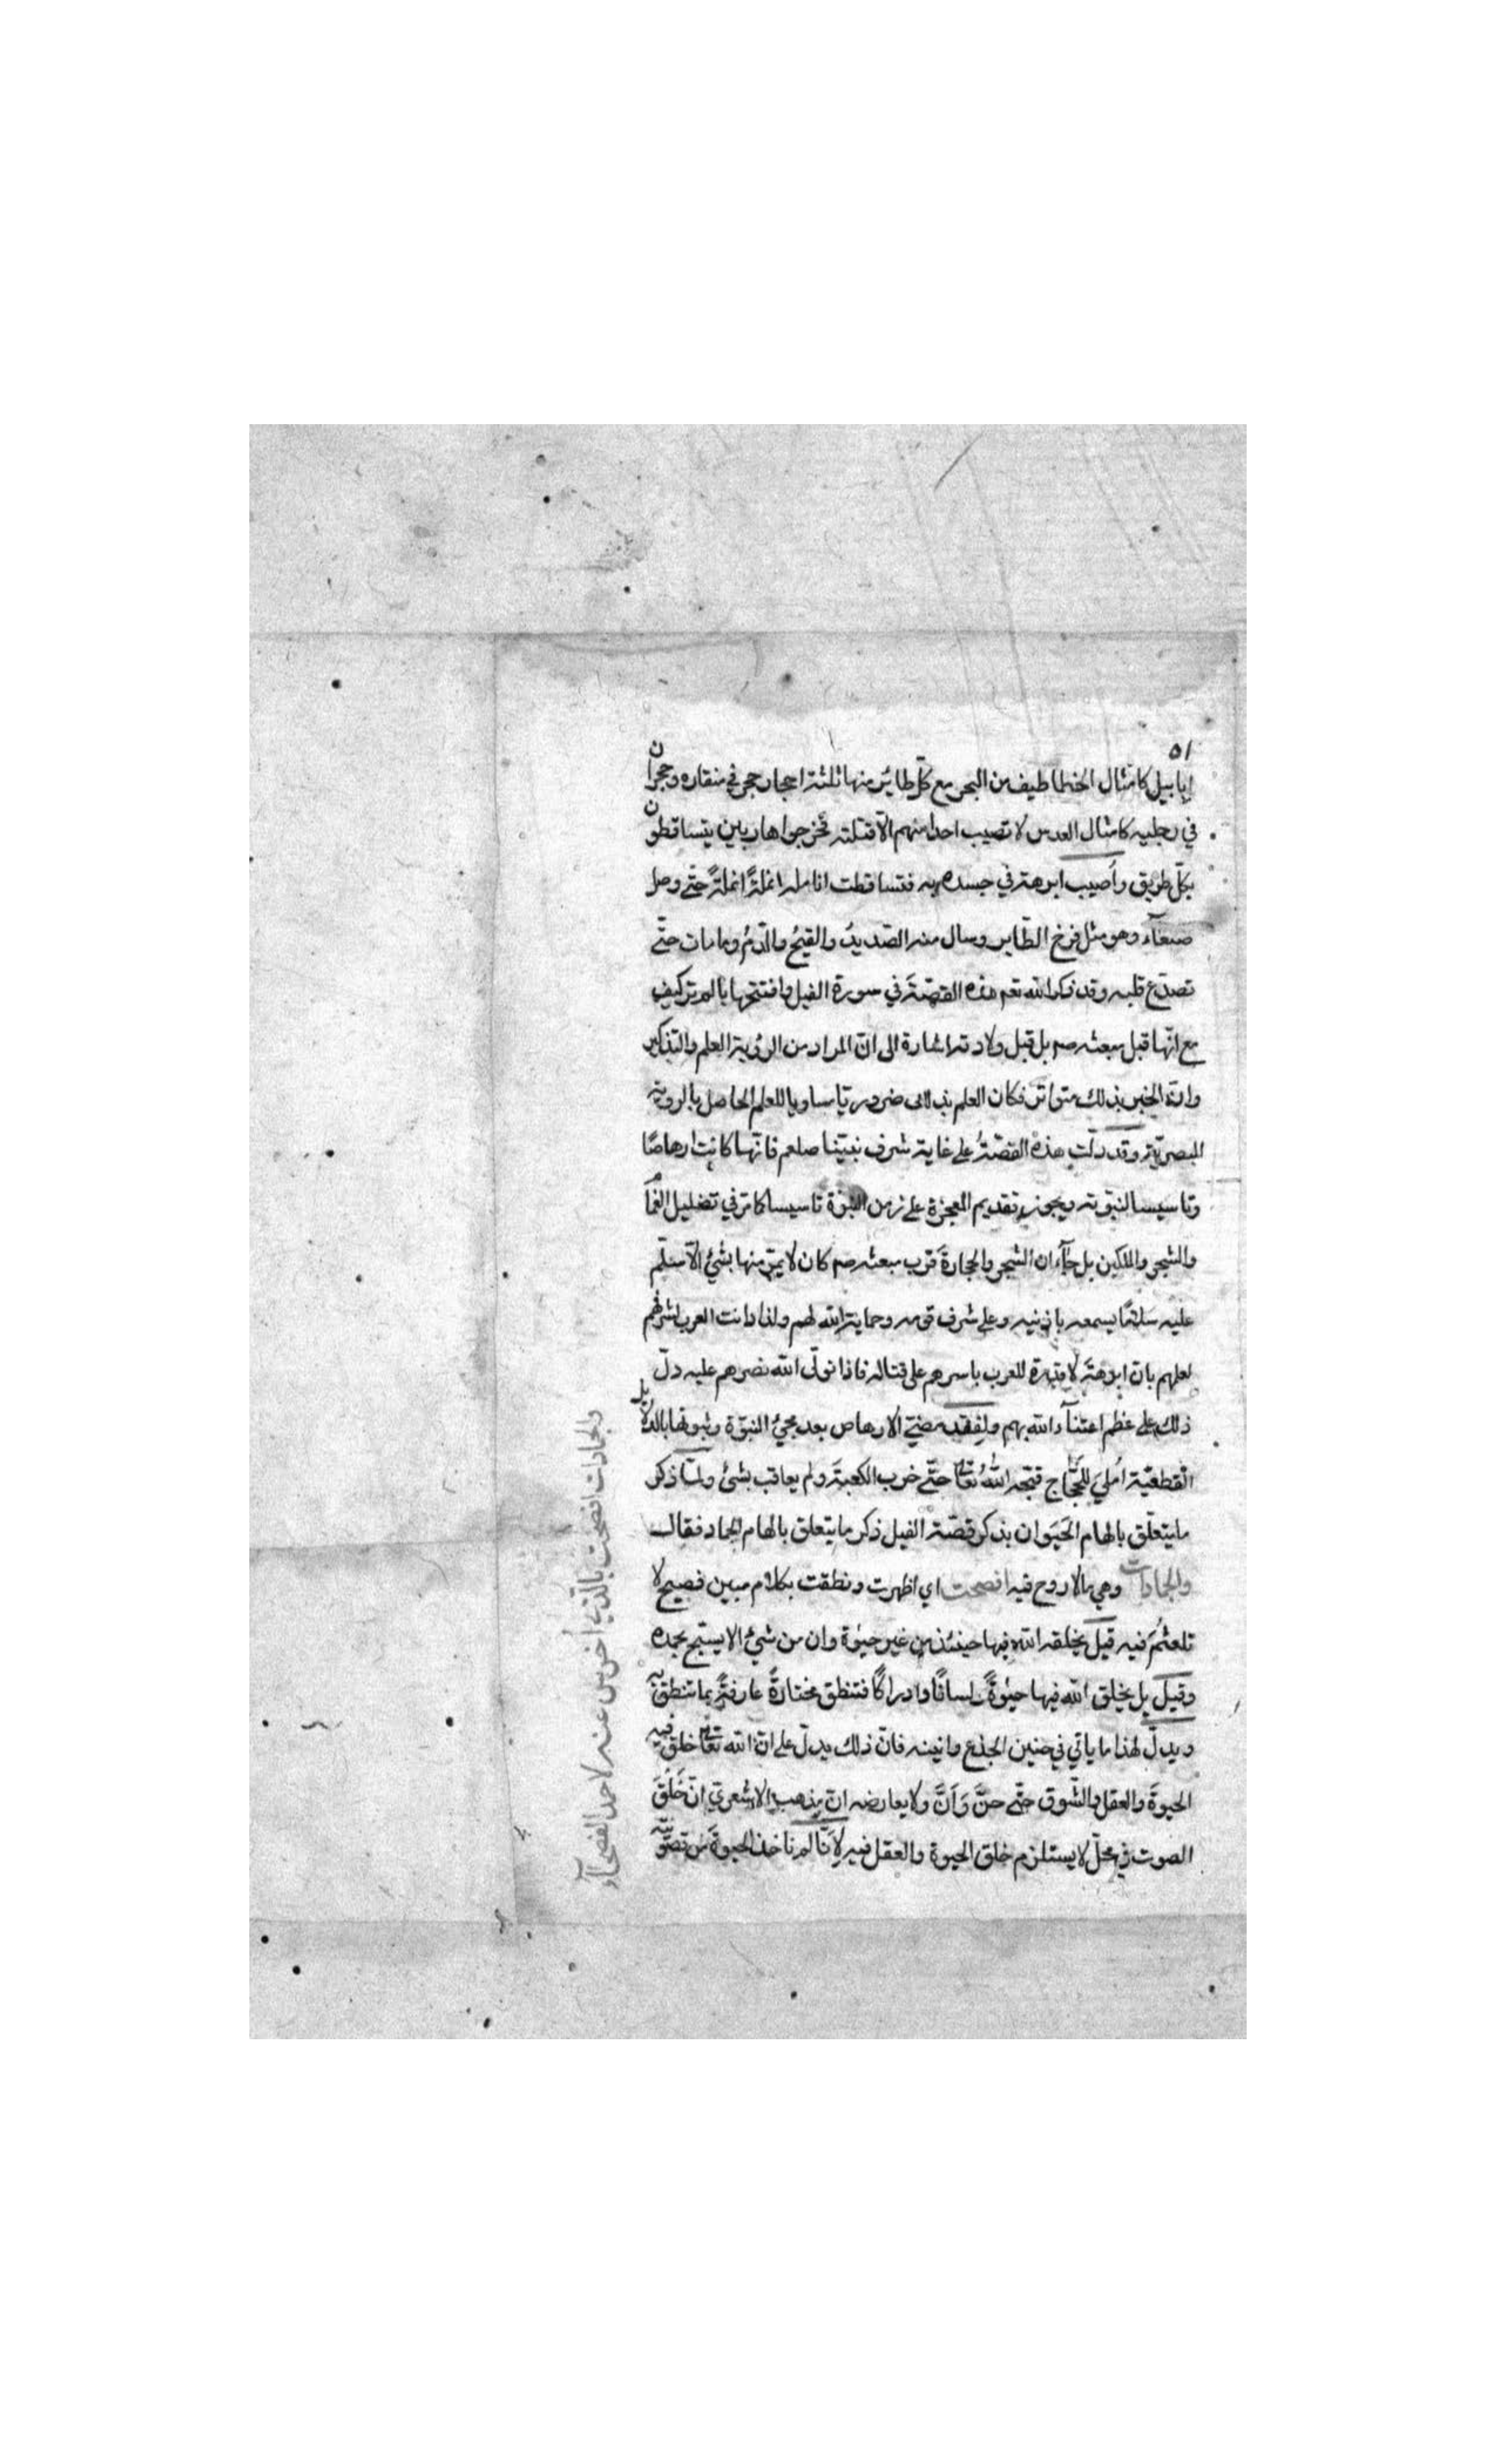 ٥١
ابابيل كامثال الخطاطيف من البحر مع كلّ طائر منها ثلثة احجار حجر في منقاره وحجران
في رجليه كامثال العدس لا تصيب احدا منهم الّا قتلته فخرجوا هاربين يتساقطون
بكلّ طريق وأصيب ابرهة في جسده به فتساقطت انامله انملةً انملةً حتّى وصل
صنعآء وهو مثل فرخ الطّاير وسال منه الصّديدُ والقيحُ والدّمُ وما مات حتّى
تصدّع قلبه وقد ذكر الله تعم هذه القصّةَ في سورة الفيل وافتتحها بالم تر كيف
مع انّها قبل مبعثه صم بل قبل ولادته اشارة الى انّ المراد من الرئية العلم والتذكير
وانّ الخبر بذلك متواتر فكان العلم به ضروريا مساويا للعلم الحاصل بالروية
البصريّة وقد دلّت هذه القصّةُ على غاية شرف نبيّنا صلعم فانّها كانت ارهاصًا
وتاسيسا لنبوّته ويجوز تقديم المعجزة على زمن النبوّة تاسيسا كما مرّ في تضليل الغمام
والشجر والملكين بل جآء ان الشجر والحجارة قرب مبعثه صم كان لا يمرّ منها بشئ الّا سلّم
عليه سلامًا يسمعه باذنيه وعلى شرف قومه وحماية الله لهم ولذا دانت العرب لشرفهم
لعلمهم بان ابرهةَ لا قدرة للعرب باسرهم على قتاله فاذا تولّى الله نصرهم عليه دلّ
ذلك على عظم اعتنآء الله بهم ولفقد مضيّ الارهاص بعد مجيئ النبوّة وثبوتها بالدلايل
القطعيّة اُمليَ للحجّاج قبّحه اللّٰهُ تعالى حتّى خرب الكعبةَ ولم يعاقب بشئ ولمّا ذكر
ما يتعلّق بالهام الحَيَوان بذكر قصّة الفيل ذكر ما يتعلق بالهام الجماد فقال
والجمادات وهي ما لا روح فيه افصحت اي اظهرت ونطقت بكلام مبين فصيح لا
تلعثُمَ فيه قيل يخلقه الله فيها حينئذ من غير حيوٰة وان من شيئ الا يسبّح بحمده
وقيل بل يخلق الله فيها حيوٰةً ولسانًا وادراكًا فتنطق مختارةً عارفةً بما تنطق به
ويدلّ لهذا ما ياتي في حنين الجذع وانينه فانّ ذلك يدلّ على انّ الله تعالى خلق فيه
الحيوةَ والعقل والشّوق حتّى حنَّ وَاَنَّ ولا يعارضه انّ مذهب الاشعريّ انّ خَلْقَ
الصوت في محلّ لا يستلزم خلق الحيوة والعقل فيه لانّا لم ناخذ الحيوةَ من تصوّته
والجمادات افصحت بالّذي اُخرس عنه لاحمد الفصحآء